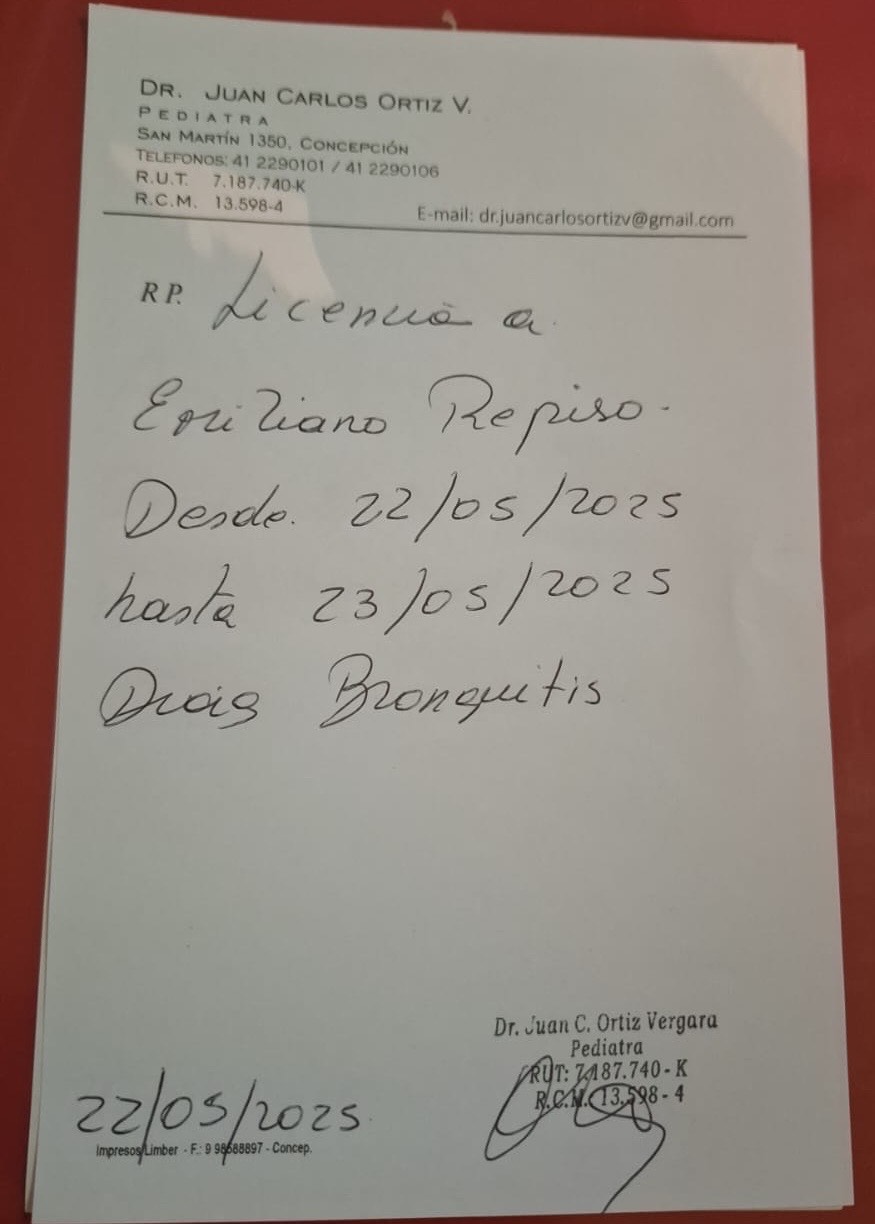 DR. JUAN CARLOS ORTIZ V.
PEDIATRA
SAN MARTÍN 1350, CONCEPCIÓN
TELEFONOS: 41 2290101 / 41 2290106
R.U.T. 7.187.740-K
R.C.M. 13.598-4
E-mail: dr.juancarlosortizv@gmail.com
RP. Licencia a
Emiliano Repiso.
Desde. 22/05/2025
hasta 23/05/2025
Diag Bronquitis
Dr. Juan C. Ortiz Vergara
Pediatra
RUT: 7.187.740-K
R.C.M. 13.598-4
22/05/2025
Impresos Limber - F.: 9 98588897 - Concep.